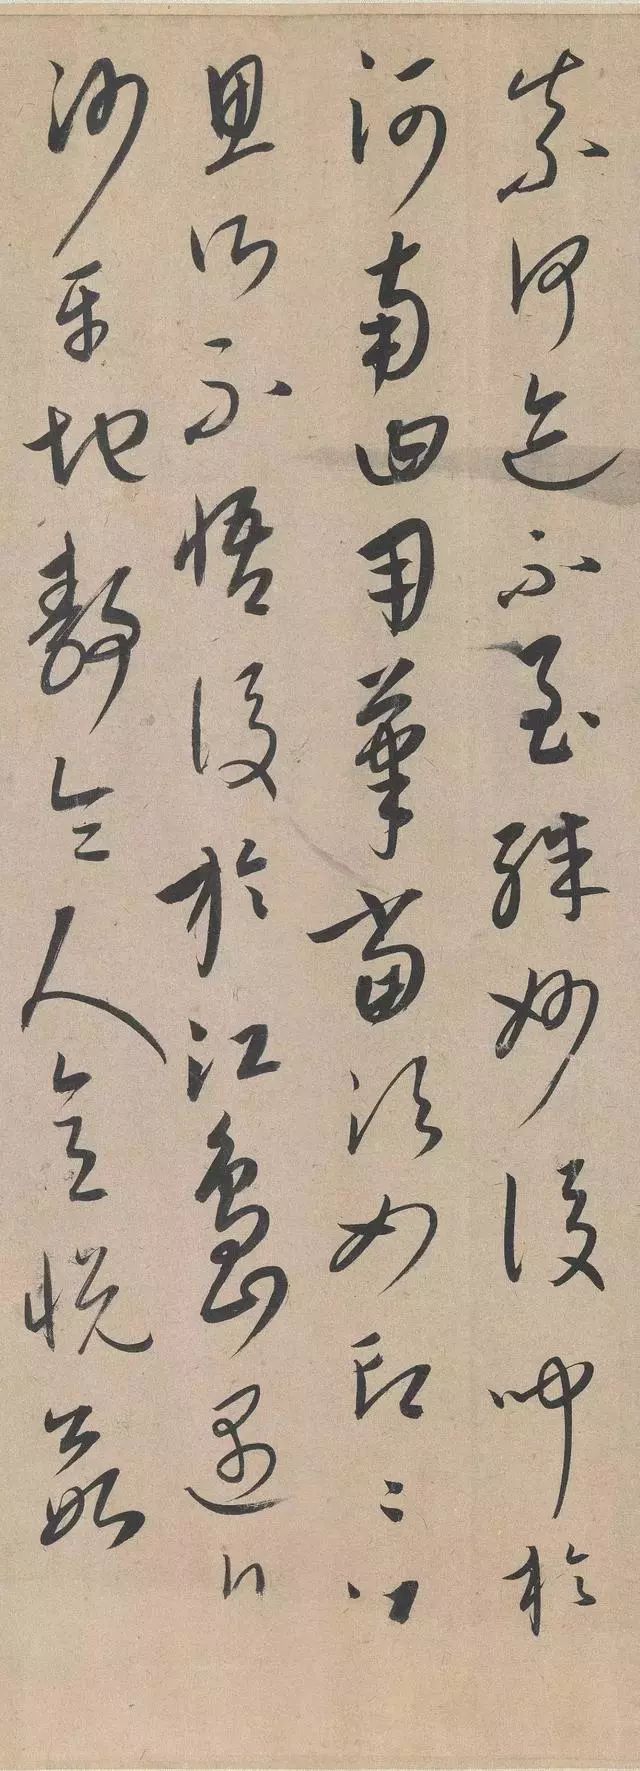 柰何迹不至殊妙後叩於
河南曰用筆當須如印〻
思所不悟後於江島遇見
沙平地靜令人意悅